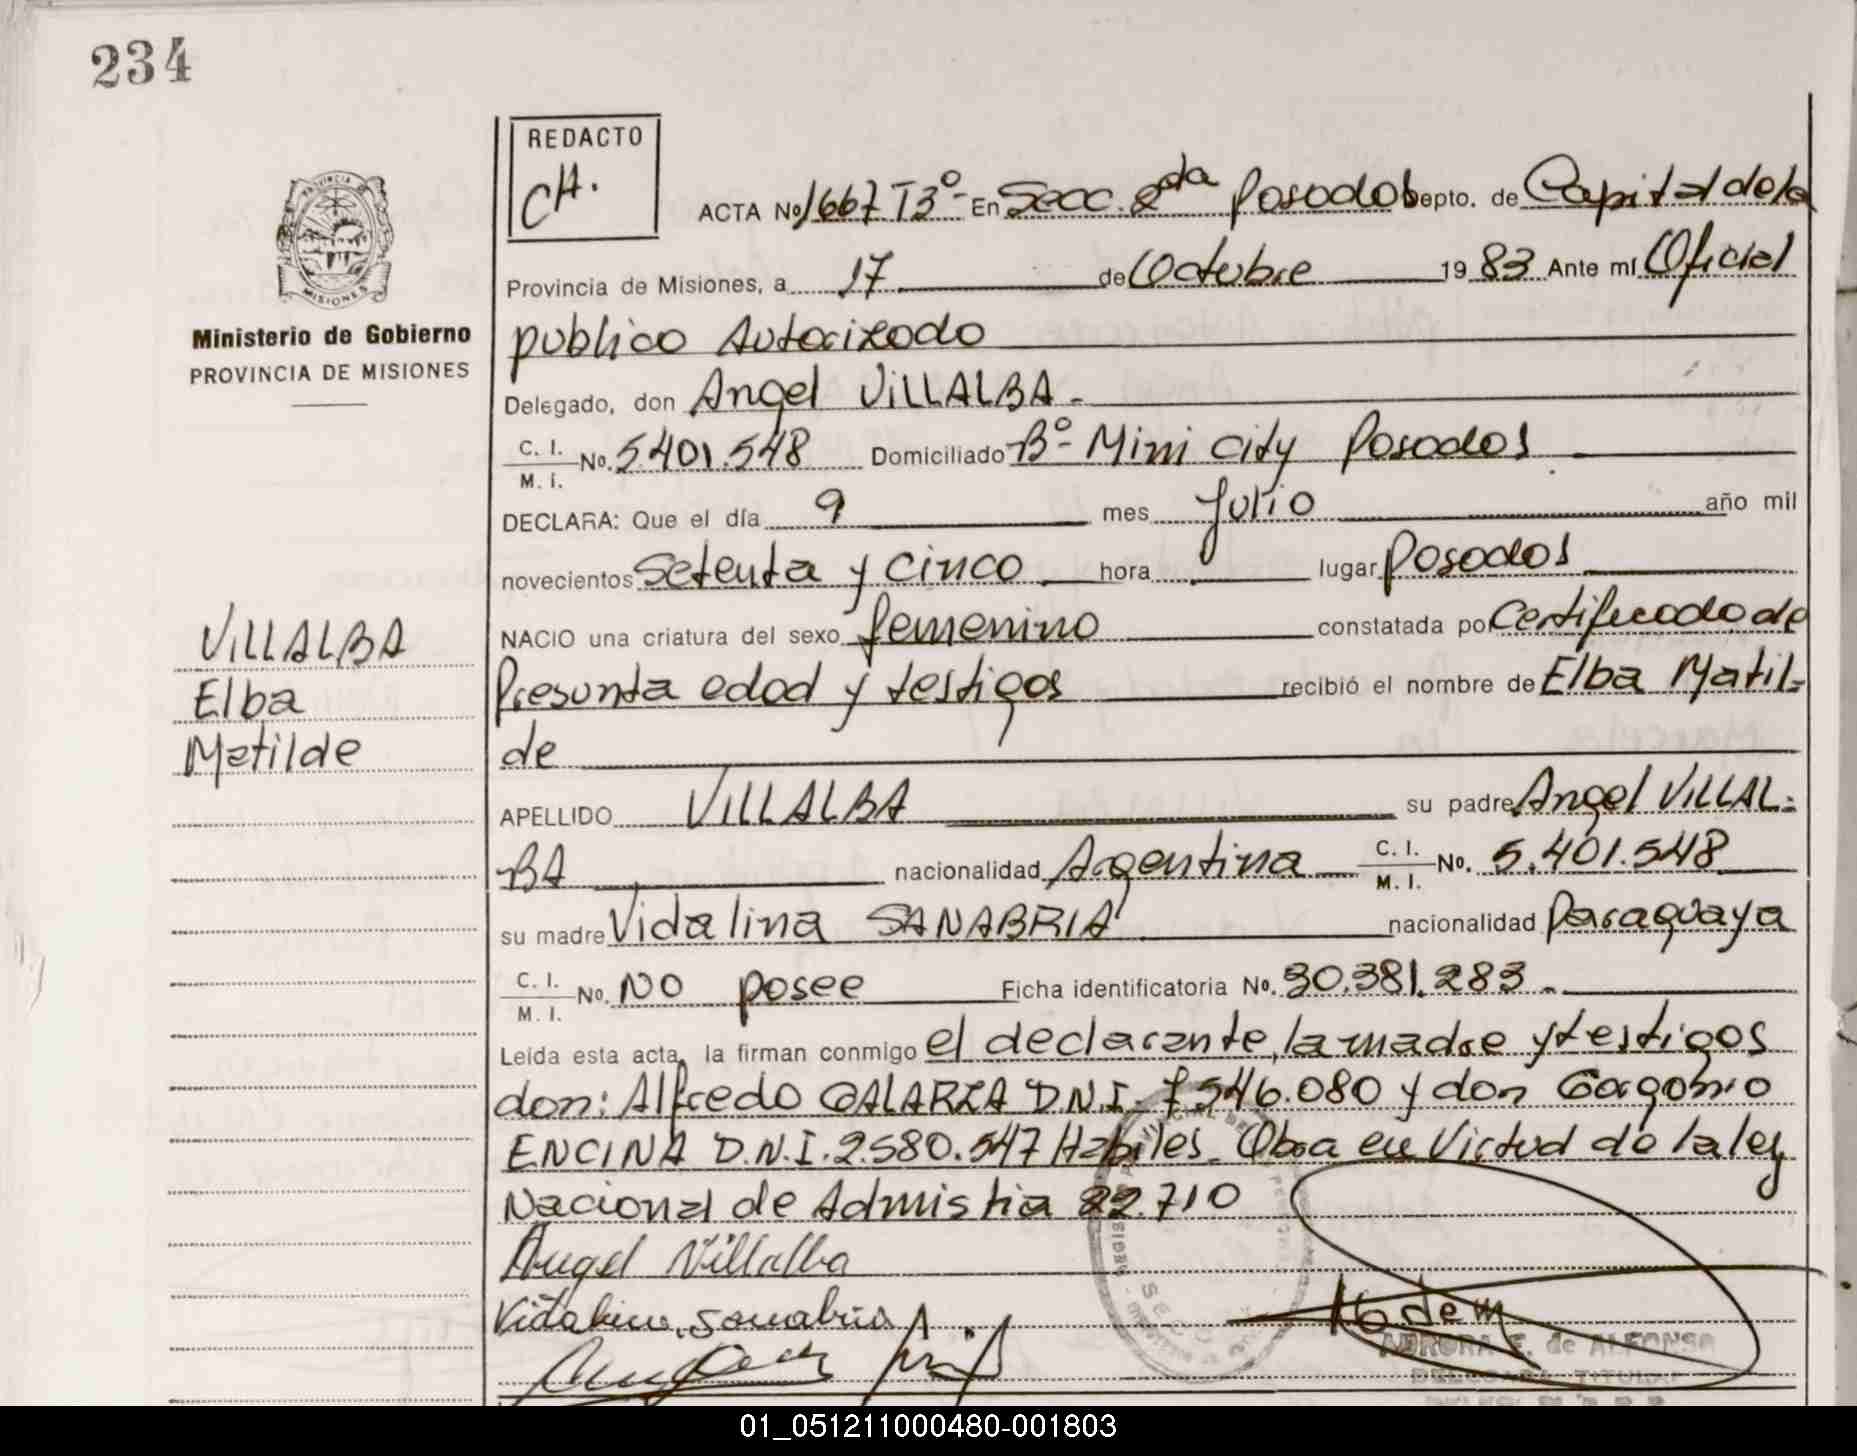 234
REDACTO
CH.
ACTA No 1667 T3º- En Secc. 2da Posadas Depto. de Capital de la
Provincia de Misiones, a 17 de Octubre 19 83 Ante mí Oficial
PROVINCIA
MISIONES
Ministerio de Gobierno
PROVINCIA DE MISIONES
publico Autorizado
Delegado, don Angel VILLALBA -
C. I. M. I. No. 5.401.548 Domiciliado Bº- Mini City Posadas
DECLARA: Que el día 9 mes Julio año mil
novecientos Setenta y cinco hora lugar Posadas
NACIO una criatura del sexo femenino constatada por Certificado de
Presunta edad y testigos recibió el nombre de Elba Matil-
de
VILLALBA
Elba
Matilde
APELLIDO VILLALBA su padre Angel VILLAL-
BA nacionalidad Argentina C. I. M. I. No. 5.401.548
su madre Vidalina SANABRIA nacionalidad Paraguaya
C. I. M. I. No. No posee Ficha identificatoria No. 30.381.283.-
Leída esta acta, la firman conmigo el declarante, la madre y testigos
don: Alfredo GALARZA D.N.I. 7.546.080 y don Gorgonio
ENCINA D.N.I. 2.580.547 Habiles. Obra en Virtud de la ley
Nacional de Admistia 22.710
Angel Villalba
Vidalina Sanabria
AURORA E. de ALFONSO
DELEGADA TITULAR
01_051211000480-001803